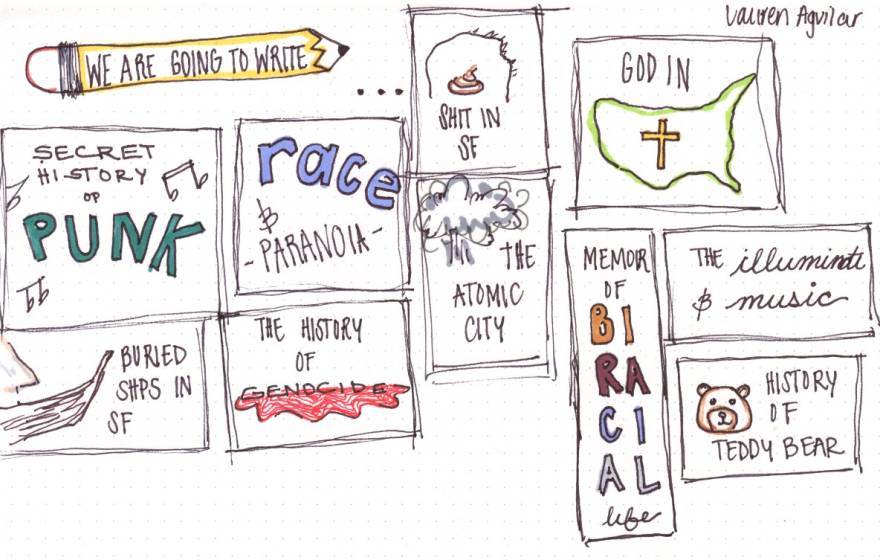 Lauren Aguilar
WE ARE GOING TO WRITE
...
SHIT IN
SF
GOD IN
SECRET
HISTORY
OF
PUNK
race
&
-PARANOIA-
THE
ATOMIC
CITY
MEMOIR
OF
BI
RA
CI
AL
life
THE illuminati
& music
BURIED
SHPS IN
SF
THE HISTORY
OF
GENOCIDE
HISTORY
OF
TEDDY BEAR